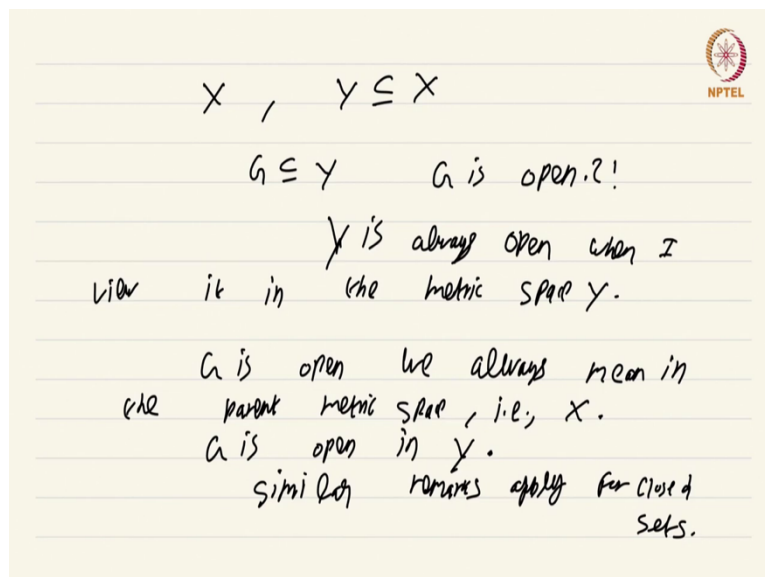 X, Y ⊆ X
NPTEL
G ⊆ Y G is open.?!
Y is always open when I
view it in the metric space Y.
G is open we always mean in
the parent metric space, i.e., X.
G is open in Y.
similar remarks apply for closed
sets.